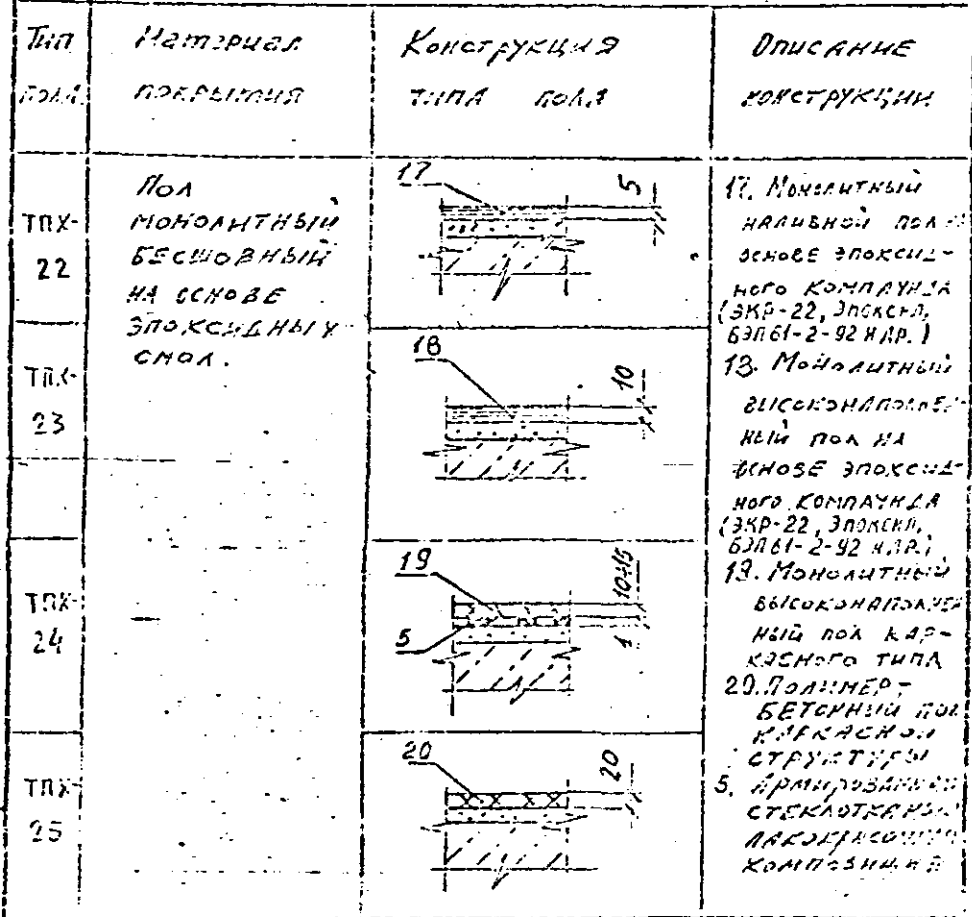 Тип
пола
Материал
покрытия
Конструкция
типа пола
Описание
конструкции
ТПХ-
22
Пол
монолитный
бесшовный
на основе
эпоксидных
смол.
17
5
17. Монолитный
наливной пол
основе эпоксид-
ного компаунда
(ЭКР-22, Эпоксил,
БЭП61-2-92 и др.)
ТПХ-
23
18
10
18. Монолитный
высоконаполнен-
ный пол на
основе эпоксид-
ного компаунда
(ЭКР-22, Эпоксил,
БЭП61-2-92 и др.)
ТПХ-
24
19
5
10÷15
1
19. Монолитный
высоконаполнен-
ный пол кар-
касного типа
ТПХ-
25
20
20
20. Полимер-
бетонный пол
каркасной
структуры
5. Армированная
стеклотканью
лакокрасочная
композиция